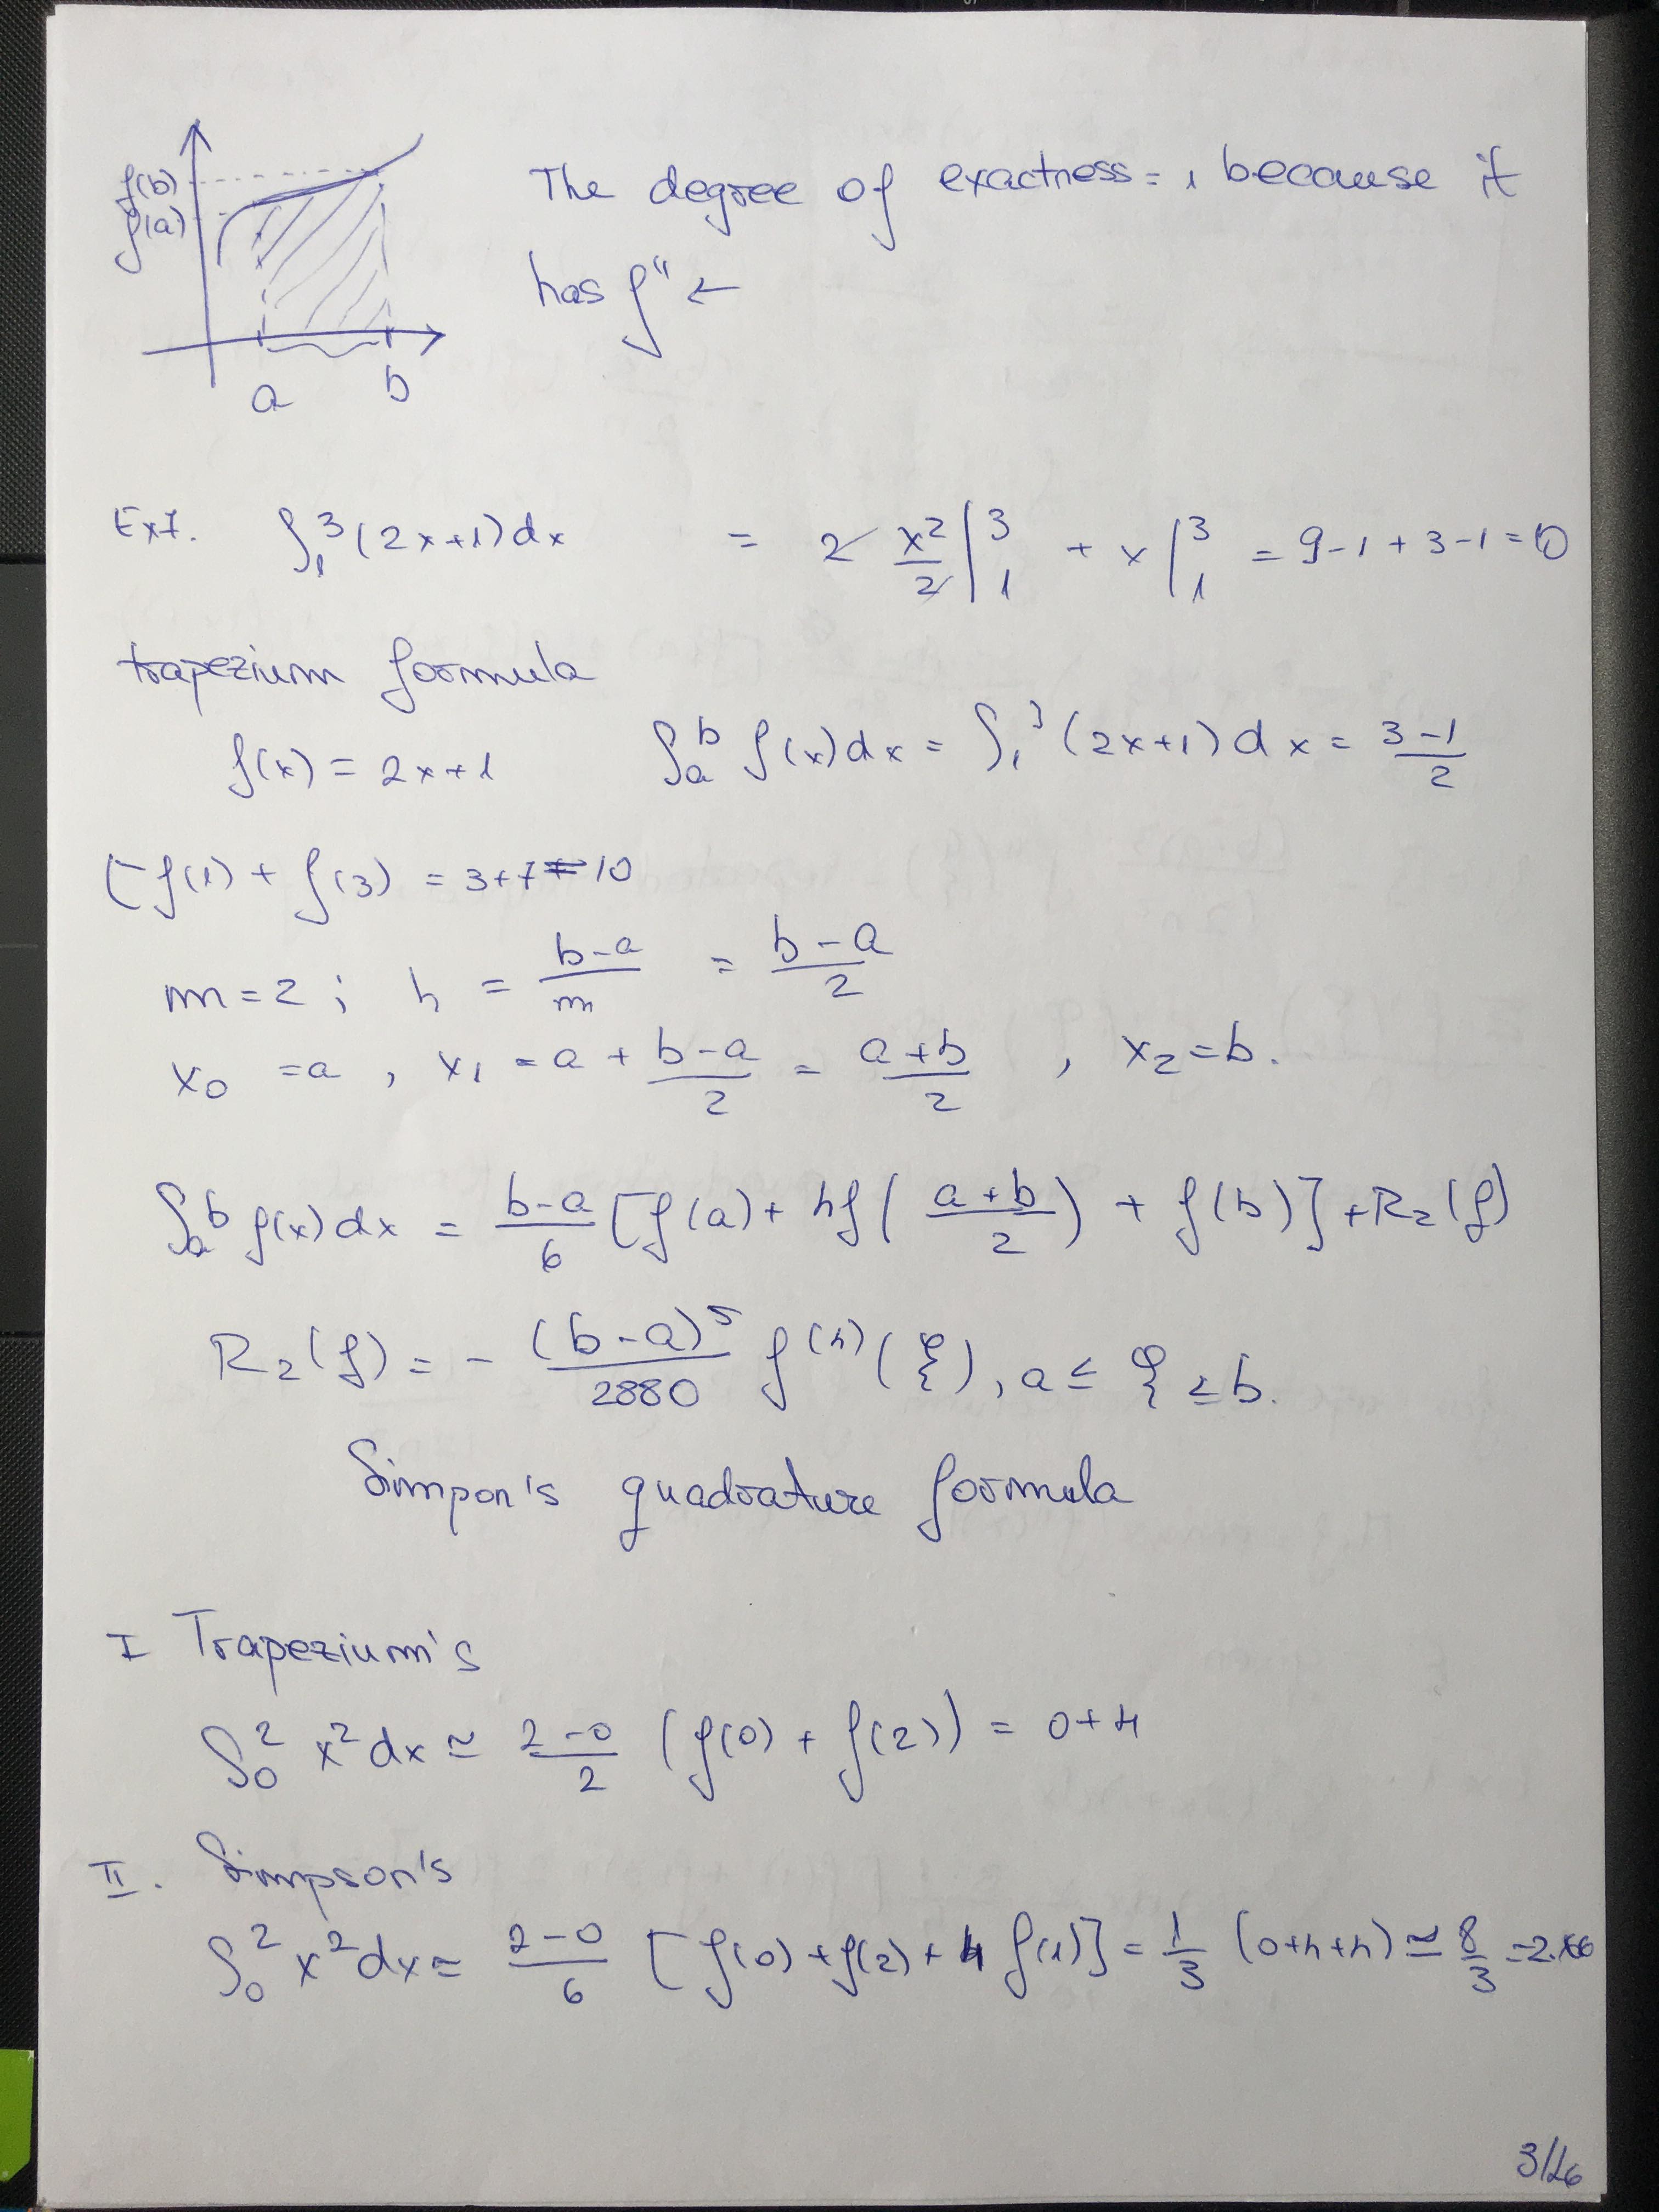 f(b)
f(a)
a b
The degree of exactness = 1 because it
has f'' ←
Ex1. ∫₁³ (2x+1)dx = 2 x²/2 |₁³ + x |₁³ = 9-1+3-1=10
trapezium formula
f(x) = 2x+1 ∫ₐᵇ f(x)dx = ∫₁³ (2x+1)dx = (3-1)/2
[f(1) + f(3) = 3+7=10
m=2; h = (b-a)/m = (b-a)/2
x₀ =a, x₁ = a + (b-a)/2 = (a+b)/2, x₂=b.
∫ₐᵇ f(x)dx = (b-a)/6 [f(a)+4f((a+b)/2) + f(b)]+R₂(f)
R₂(f) = - (b-a)⁵/2880 f⁽⁴⁾(ξ), a≤ ξ ≤b.
Simpon's quadrature formula
I Trapezium's
∫₀² x²dx ≃ (2-0)/2 (f(0) + f(2)) = 0+4
II. Simpson's
∫₀² x²dx ≃ (2-0)/6 [f(0)+f(2)+4f(1)] = 1/3 (0+4+4) ≃ 8/3 =2.66